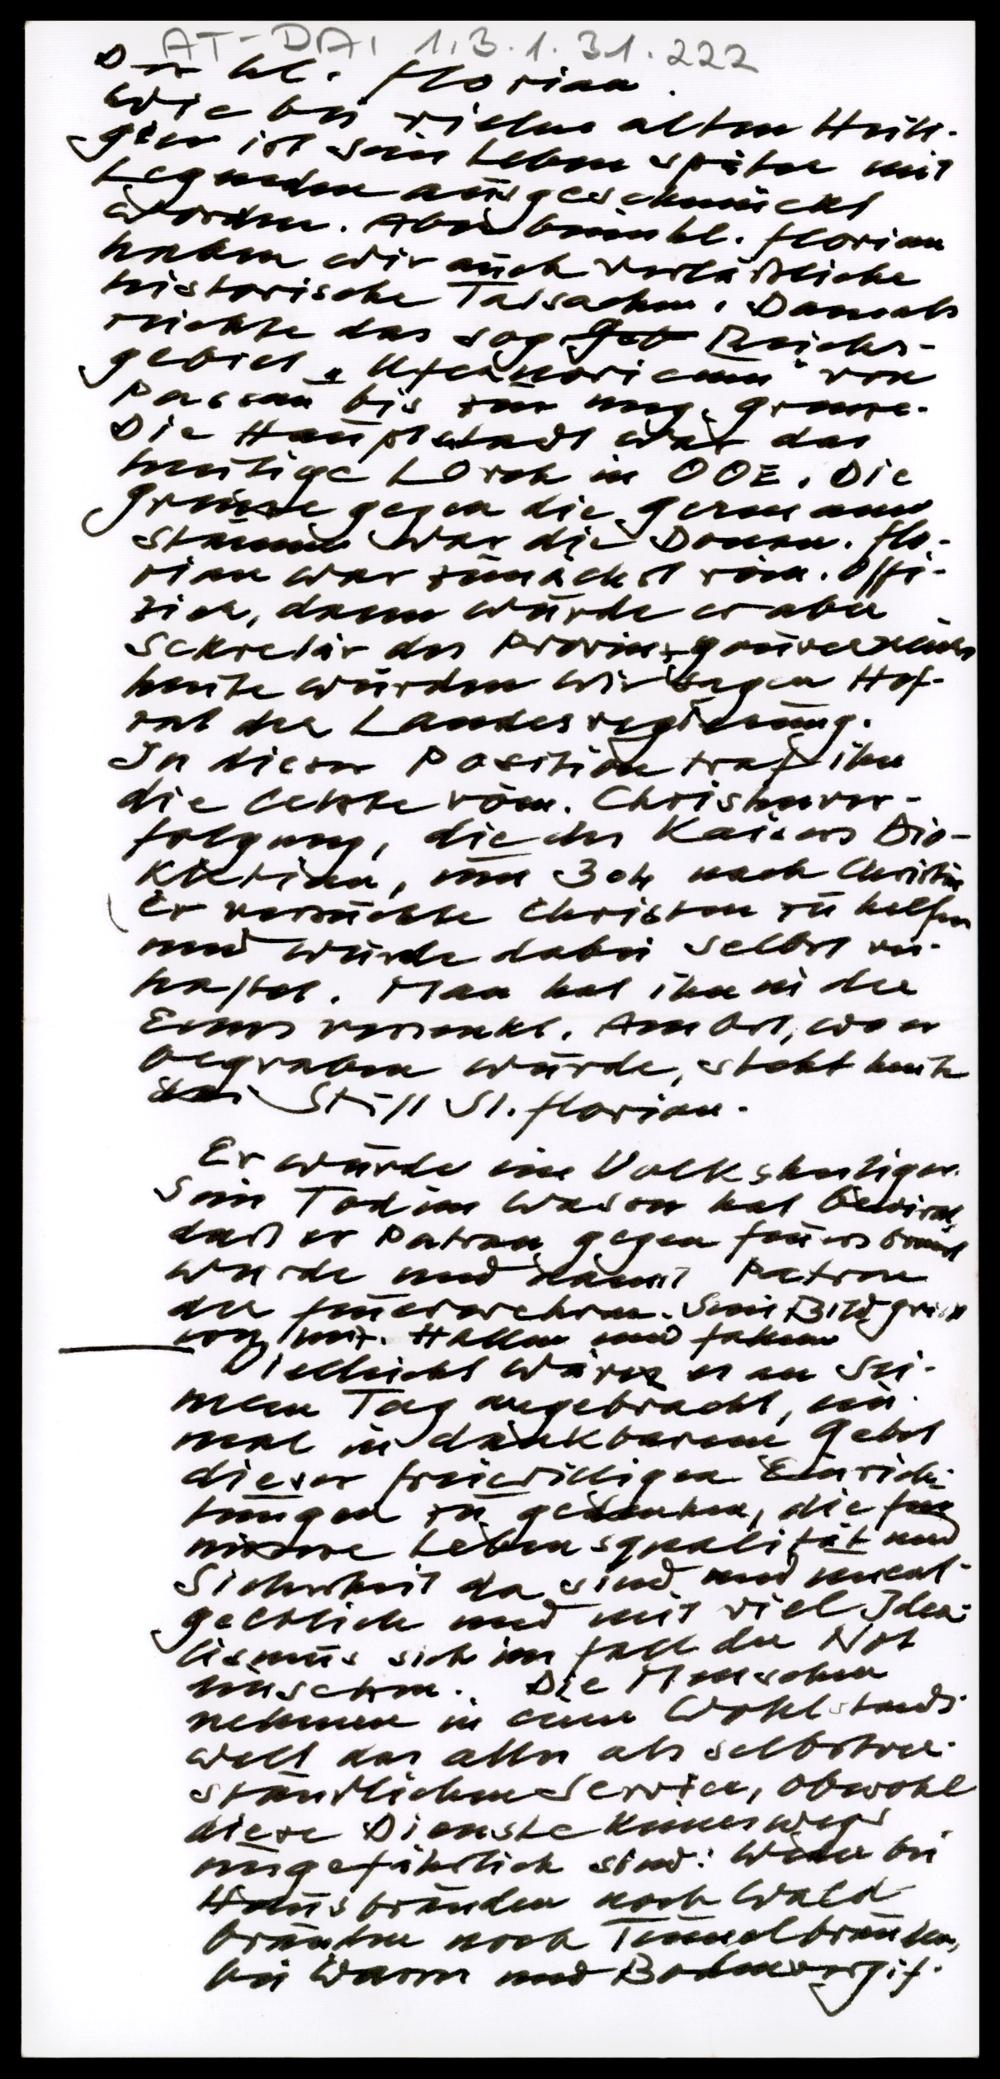 AT-DAI 1.3.1.31.222
Der hl. Florian.
Wie bei vielen alten Heili-
gen ist sein Leben später mit
Legenden ausgeschmückt
worden. Aber beim hl. Florian
haben wir auch verläßliche
historische Tatsachen. Damals
reichte das sog. Reichs-
gebiet „Ufernoricum" von
Passau bis zur ung. Grenze.
Die Hauptstadt war das
heutige Lorch in OOE. Die
Grenze gegen die German
stämme war die Donau. Flo-
rian war zunächst röm. Offi-
zier, dann wurde er aber
Sekretär des Provinzgouverneurs
heute würden wir sagen Hof-
rat der Landesregierung.
In dieser Position traf ihn
die letzte röm. Christenver-
folgung, die des Kaisers Dio-
kletian, um 304 nach Christus
Er versuchte Christen zu helfen
und wurde dabei selbst ver-
haftet. Man hat ihn in der
Enns versenkt. Am Ort, wo er
begraben wurde, steht heute
das Stift St. Florian.
Er wurde ein Volksheiliger.
Sein Tod im Wasser hat bewirkt,
daß er Patron gegen Feuersbrunst
wurde und damit Patron
der Feuerwehren. Sein Bild grüßt
von Hallen und Fahnen
Vielleicht wäre es an sei-
nem Tag angebracht, ein-
mal in dankbarem Gebet
dieser freiwilligen Einrich-
tungen zu gedenken, die für
unsere Lebensqualität und
Sicherheit da sind und unent-
geltlich und mit viel Idea-
lismus sich im Fall der Not
einsetzen. Die Menschen
nehmen in einer Wohlstands-
welt das alles als selbstver-
ständlichen Service, obwohl
diese Dienste keineswegs
ungefährlich sind: Weder bei
Hausbränden noch Wald
bränden noch Tunnelbränden,
bei Wasser und Bodenvergif-